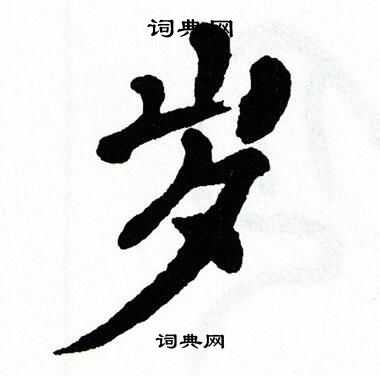 词典网
岁
词典网